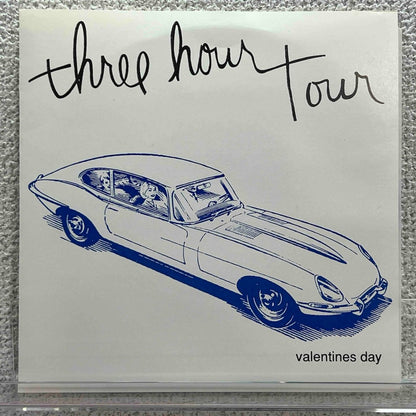 three hour
tour
valentines day